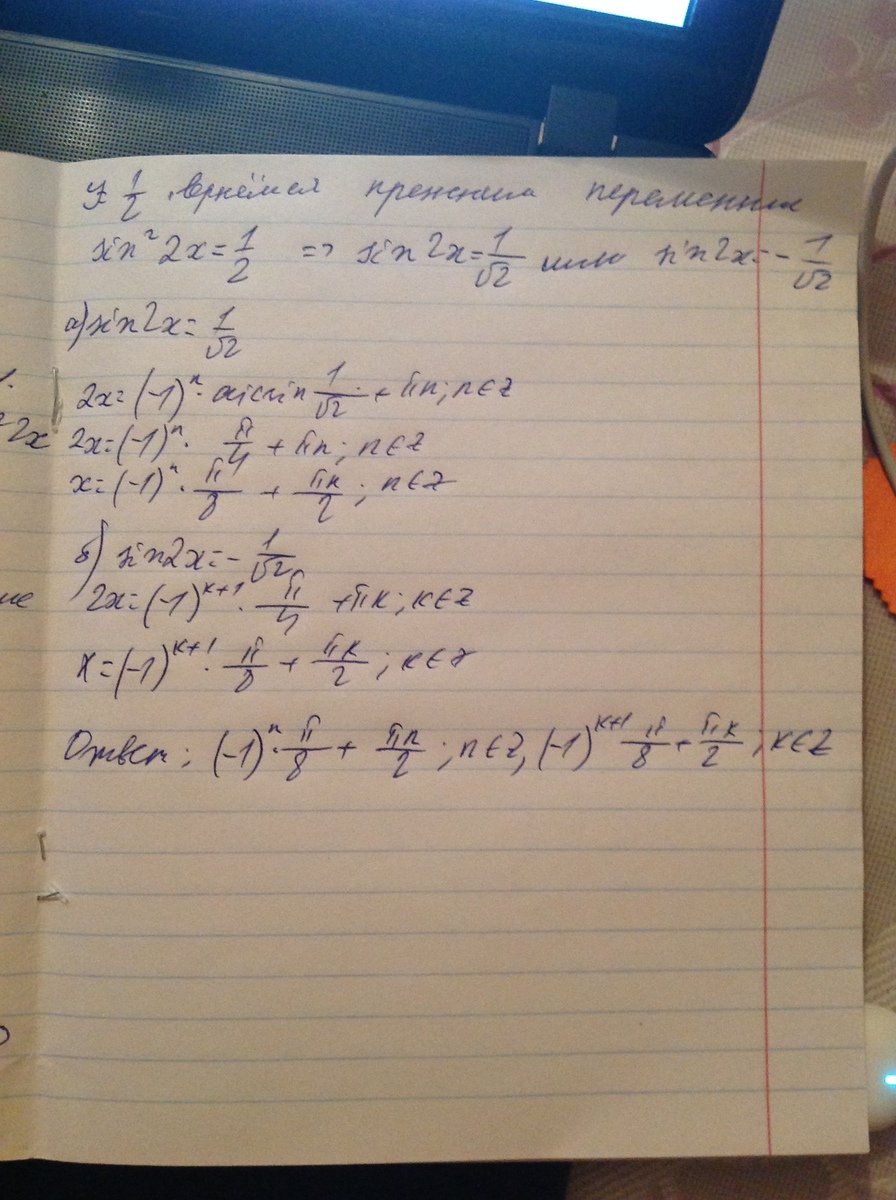 y = 1/2 . вернёмся прежним переменным
sin² 2x = 1/2 => sin 2x = 1/√2 или sin 2x = - 1/√2
а) sin 2x = 1/√2
2x = (-1)ⁿ · arcsin 1/√2 + πn; n ∈ Z
2x
2x = (-1)ⁿ · π/4 + πn; n ∈ Z
x = (-1)ⁿ · π/8 + πn/2; n ∈ Z
б) sin 2x = - 1/√2
2x = (-1)ᵏ⁺¹ · π/4 + πk; k ∈ Z
x = (-1)ᵏ⁺¹ · π/8 + πk/2; k ∈ Z
Ответ; (-1)ⁿ · π/8 + πn/2; n ∈ Z, (-1)ᵏ⁺¹ π/8 + πk/2; k ∈ Z